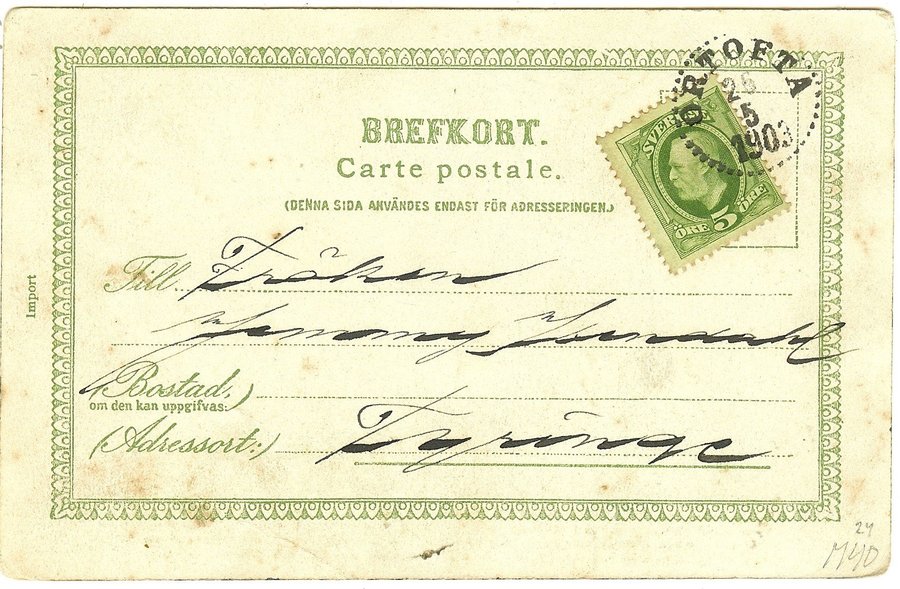 ÖRTOFTA
25
5
1903
SVERIGE
5
ÖRE ÖRE
BREFKORT.
Carte postale.
(DENNA SIDA ANVÄNDES ENDAST FÖR ADRESSERINGEN.)
Till Fröken
Bostad,
om den kan uppgifvas:)
(Adressort:) Tyringe
Import
24